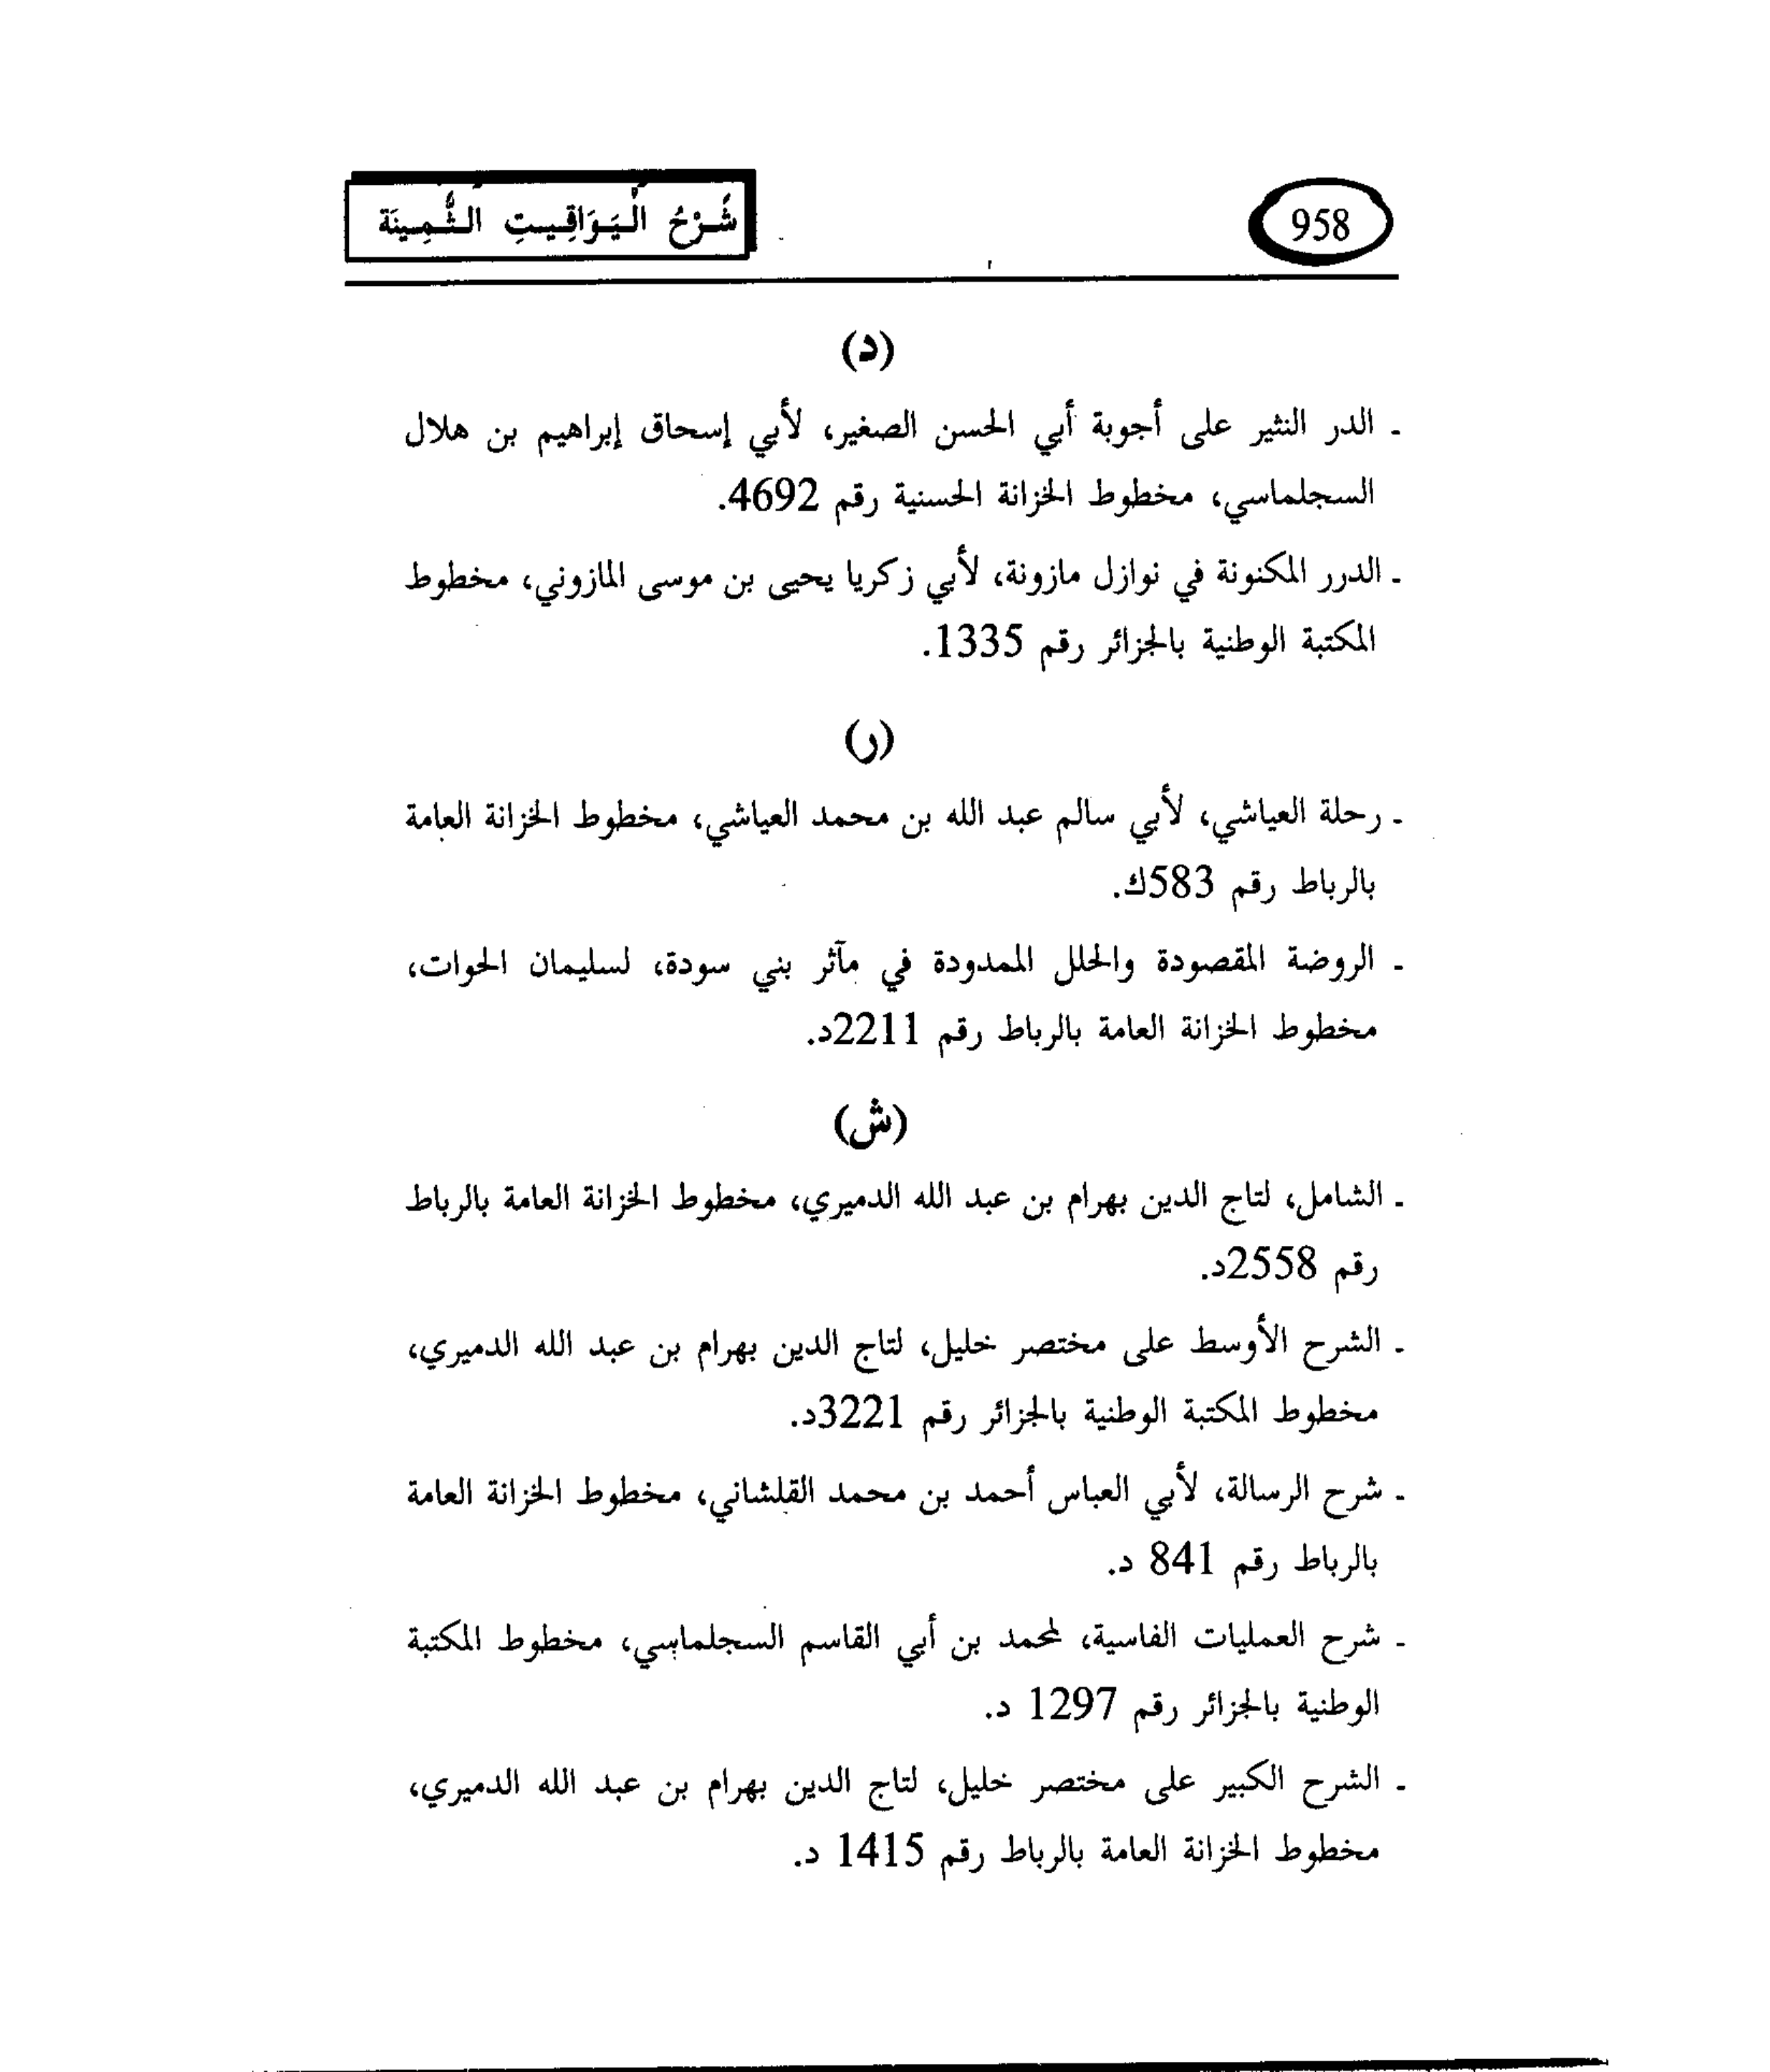 958
شَرْحُ الْيَوَاقِيتِ الثَّمِينَة
(د)
ـ الدر النثير على أجوبة أبي الحسن الصغير، لأبي إسحاق إبراهيم بن هلال
السجلماسي، مخطوط الخزانة الحسنية رقم 4692.
ـ الدرر المكنونة في نوازل مازونة، لأبي زكريا يحيى بن موسى المازوني، مخطوط
المكتبة الوطنية بالجزائر رقم 1335.
(ر)
ـ رحلة العياشي، لأبي سالم عبد الله بن محمد العياشي، مخطوط الخزانة العامة
بالرباط رقم 583ك.
ـ الروضة المقصودة والحلل الممدودة في مآثر بني سودة، لسليمان الحوات،
مخطوط الخزانة العامة بالرباط رقم 2211د.
(ش)
ـ الشامل، لتاج الدين بهرام بن عبد الله الدميري، مخطوط الخزانة العامة بالرباط
رقم 2558د.
ـ الشرح الأوسط على مختصر خليل، لتاج الدين بهرام بن عبد الله الدميري،
مخطوط المكتبة الوطنية بالجزائر رقم 3221د.
ـ شرح الرسالة، لأبي العباس أحمد بن محمد القلشاني، مخطوط الخزانة العامة
بالرباط رقم 841 د.
ـ شرح العمليات الفاسية، لمحمد بن أبي القاسم السجلماسي، مخطوط المكتبة
الوطنية بالجزائر رقم 1297 د.
ـ الشرح الكبير على مختصر خليل، لتاج الدين بهرام بن عبد الله الدميري،
مخطوط الخزانة العامة بالرباط رقم 1415 د.